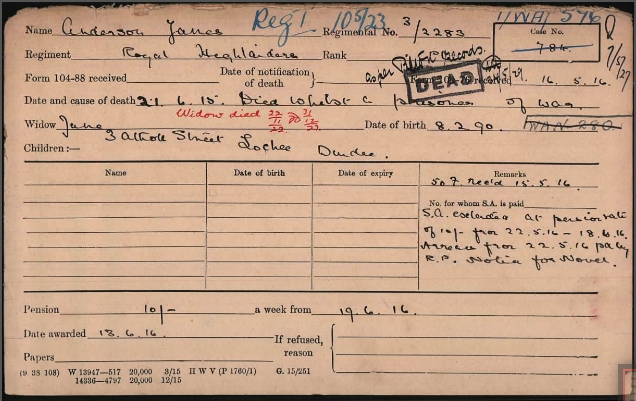 Reg 1 10523 1/WA/ 576
Name Anderson James Regimental No. 3/2283 Case No. 784.
Regiment Royal Highlanders Rank
as per records.
Form 104-88 received Date of notification of death } Form 104-76 received 16.5.16.
DEAD
Date and cause of death 21.6.15. Died whilst a prisoner of war.
Widow died 22/11/22
Widow Jane Date of birth 8.2.90. WAN 280
3 Atholl Street Lochee Dundee.
Children:—
Name Date of birth Date of expiry Remarks
50 F. recd 15.5.16.
No. for whom S.A. is paid
S.A. extended at pension rate
of 10/- from 22.5.16 - 18.6.16.
Arrears from 22.5.16 pd by
R.P. Notice for Novel.
Pension 10/- a week from 19.6.16.
Date awarded 18.6.16. If refused, reason {
Papers
(9 38 108) W 13947—517 20,000 3/15 H W V (P 1760/1) G. 15/251
14336—4797 20,000 12/15